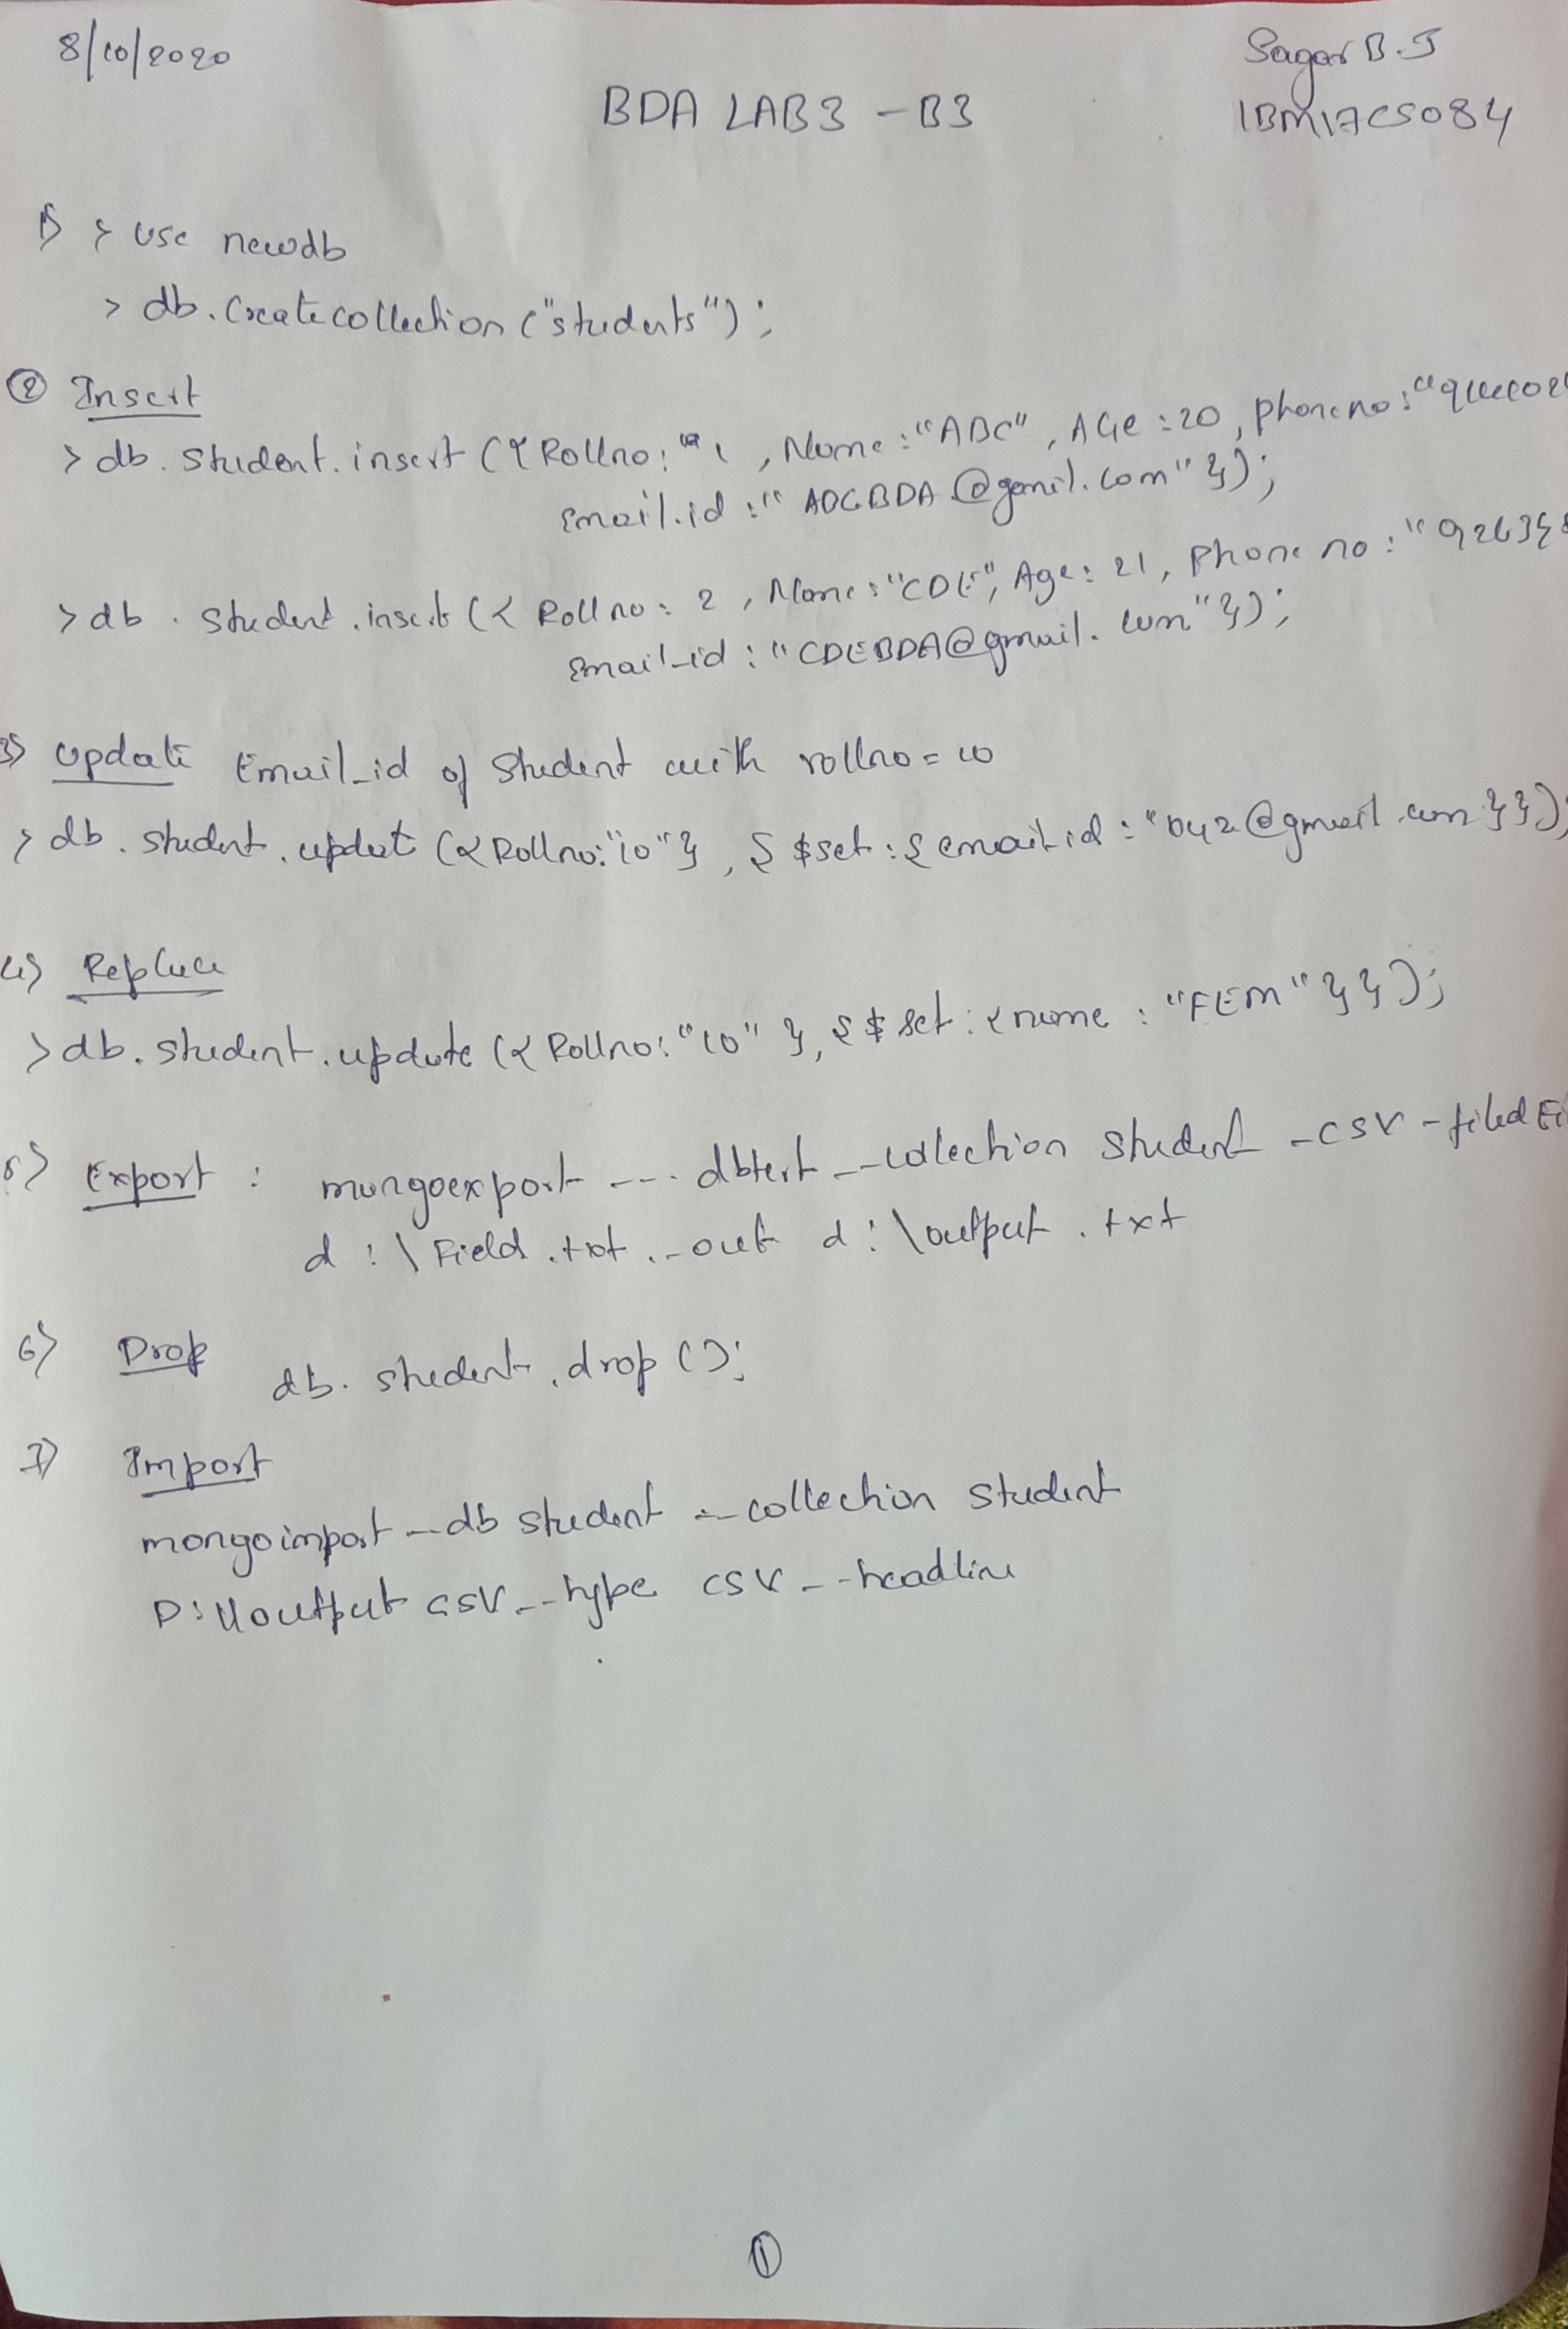 8/10/2020
Sagar B.J
BDA LAB3 - B3
1BM17CS084
1) > use newdb
> db.Createcollection("students");
② Insert
> db.student.insert({Rollno: 1, Name:"ABC", AGe:20, phoneno:"
email.id:" @gmail.com"});
> db.student.insert({Rollno: 2, Name:"CDE", Age: 21, Phone no:"
Email_id:"CDEBDA@gmail.com"});
3) Update Email_id of Student with rollno = 10
> db.student.update({Rollno:"10"}, {$set:{email.id: @gmail.com}});
4) Replace
> db.student.update({Rollno:"10"}, {$set:{name:"FEM"}});
5) Export : mongoexport --- --collection student -csv -
d:\Field.txt --out d:\output.txt
6) Drop
db.student.drop();
7) Import
mongoimport --db student --collection student
D:\\output csv --type csv --headline
①